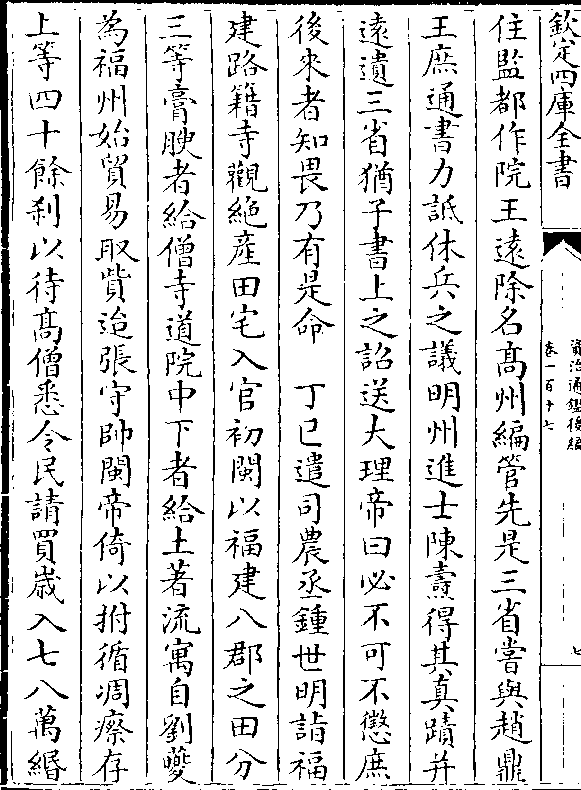 欽定四庫全書
資治通鑑後編
卷一百十七
七
住監都作院王遠除名髙州編管先是三省嘗與趙鼎
王庶通書力詆休兵之議明州進士陳燾得其真蹟并
遠遺三省猶子書上之詔送大理帝曰必不可不懲庶
後來者知畏乃有是命　丁巳遣司農丞鍾世明詣福
建路籍寺觀絶産田宅入官初閩以福建八郡之田分
三等膏腴者給僧寺道院中下者給土著流寓自劉夔
為福州始貿易取貲迨張守帥閩帝倚以拊循凋瘵存
上等四十餘剎以待髙僧悉令民請買嵗入七八萬緡